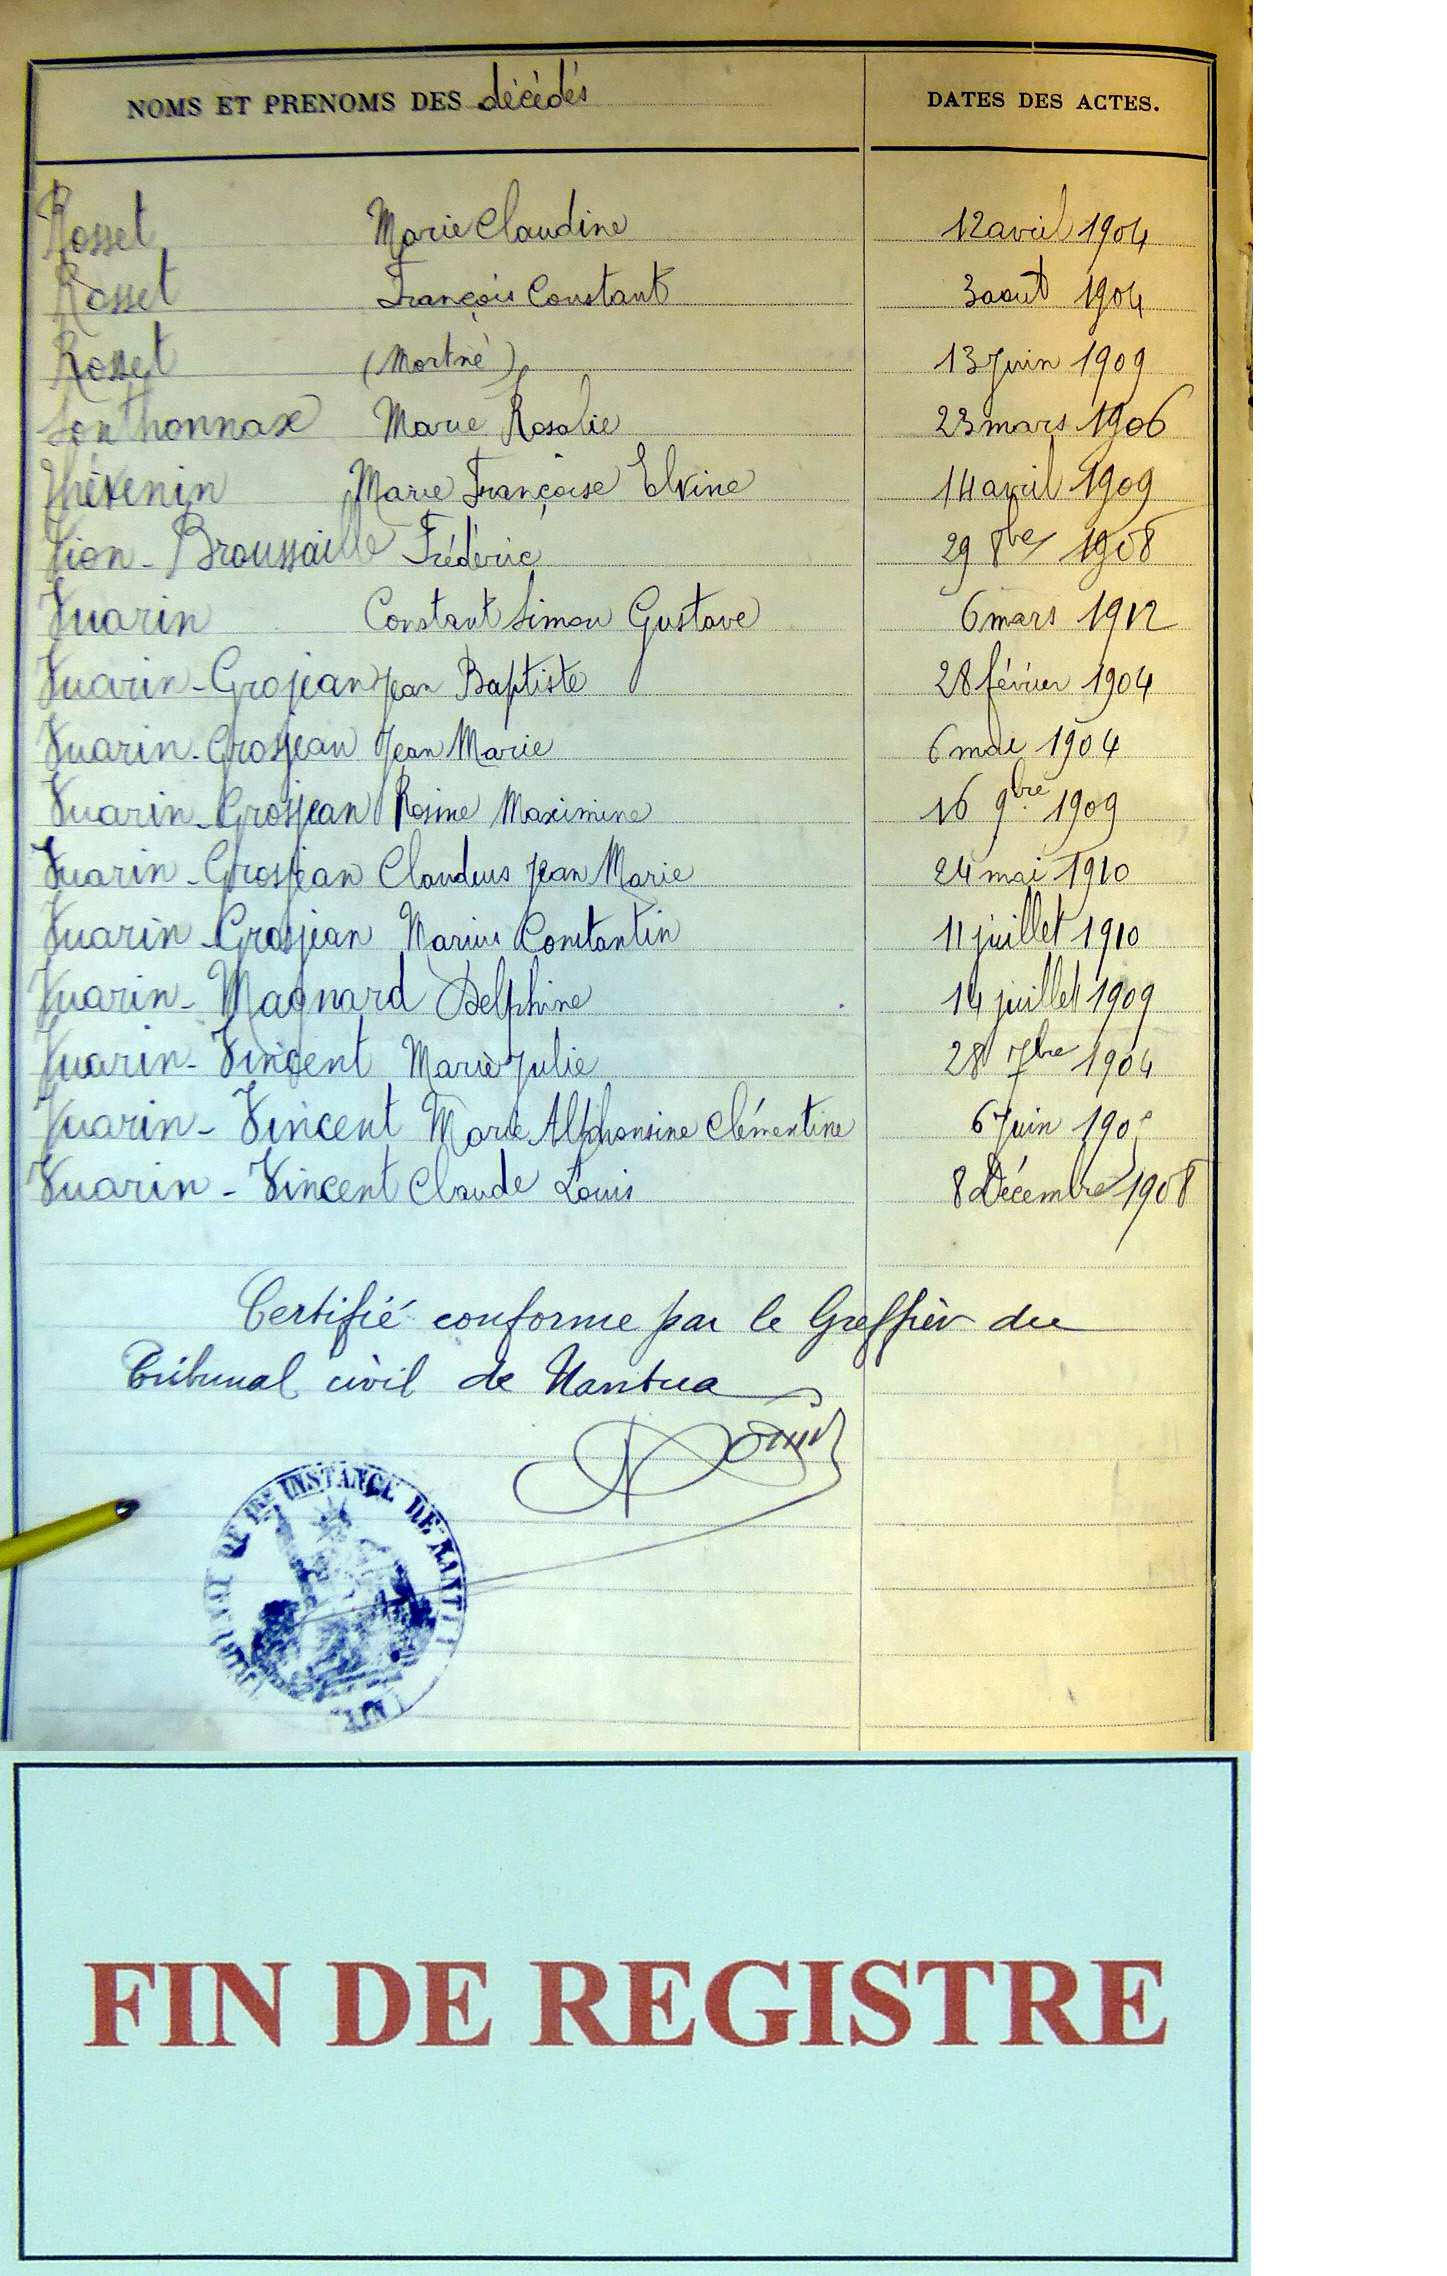 NOMS ET PRENOMS DES décédés DATES DES ACTES.
Rosset Marie Claudine 12 avril 1904
Rosset François Constant 3 aout 1904
Rosset (Mortné) 13 Juin 1909
Sonthonnax Marie Rosalie 23 mars 1906
Thévenin Marie Françoise Elvine 14 avril 1909
Vion-Broussaille Frédéric 29 8bre 1908
Vuarin Constant Simon Gustave 6 mars 1912
Vuarin-Grosjean Jean Baptiste 28 février 1904
Vuarin-Grosjean Jean Marie 6 mai 1904
Vuarin-Grosjean Rosine Maximine 16 9bre 1909
Vuarin-Grosjean Claudius Jean Marie 24 mai 1910
Vuarin-Grosjean Marius Constantin 11 juillet 1910
Vuarin-Magnard Delphine 14 juillet 1909
Vuarin-Vincent Marie Julie 28 7bre 1904
Vuarin-Vincent Marie Alphonsine Clémentine 6 Juin 1905
Vuarin-Vincent Claude Louis 8 Décembre 1908
Certifié conforme par le Greffier du
Tribunal civil de Nantua
DE 1RE INSTANCE DE NANTUA
FIN DE REGISTRE